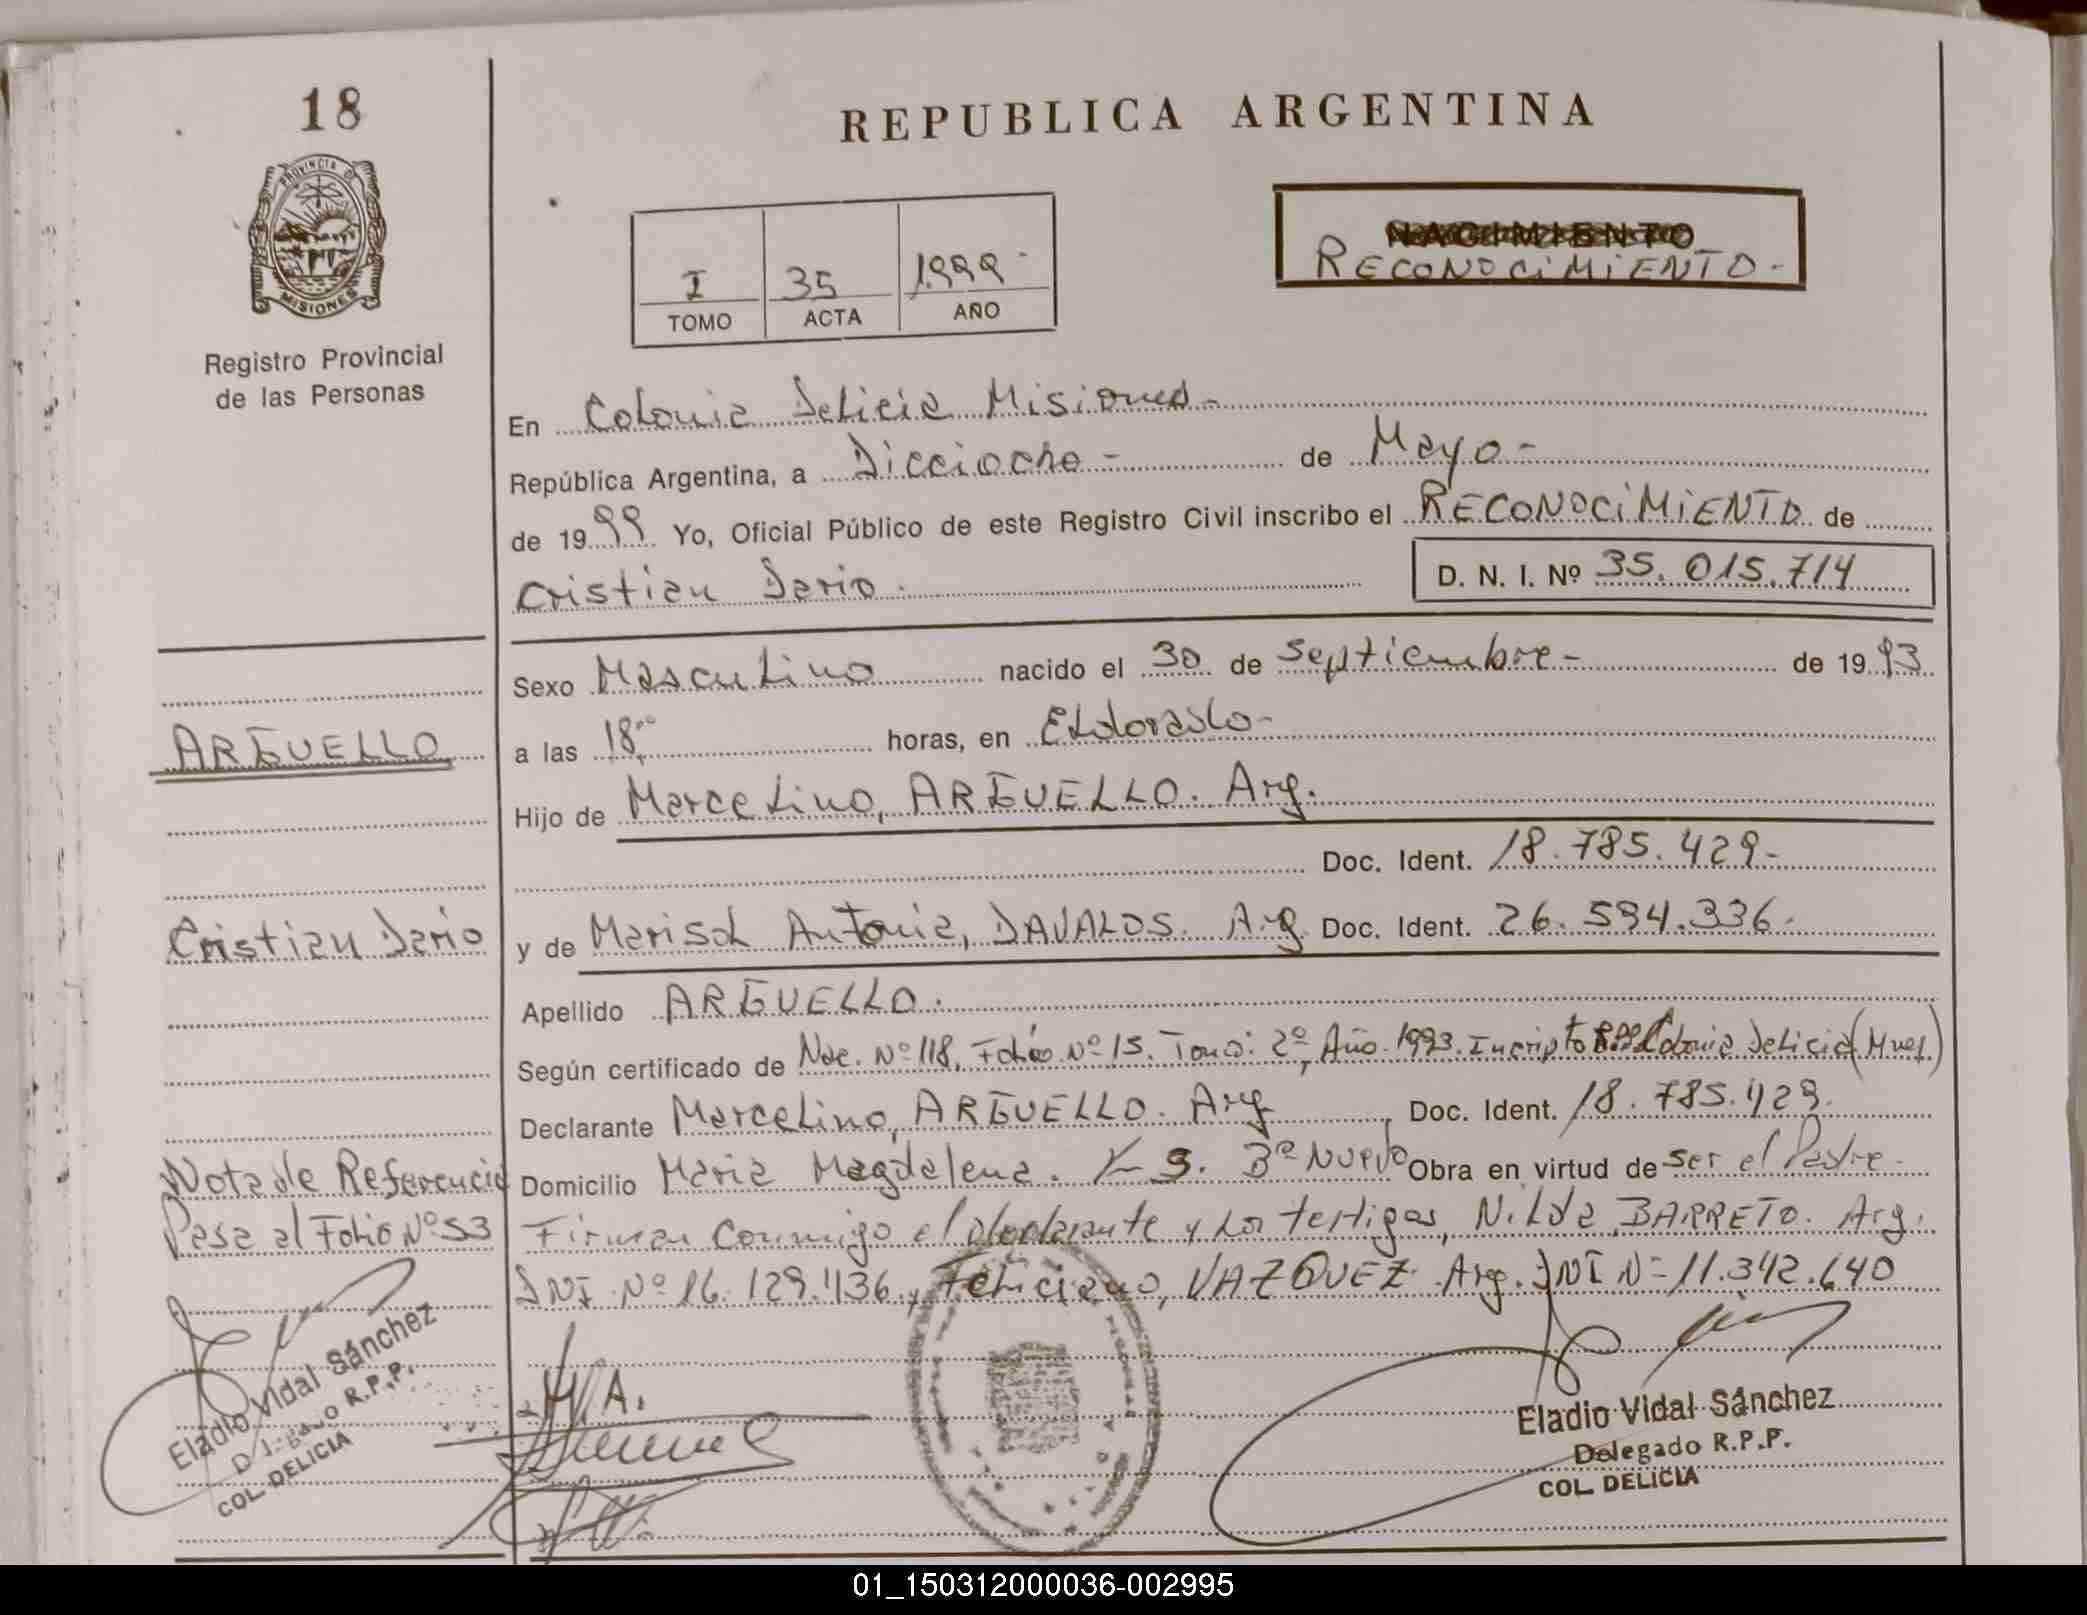 18
REPUBLICA ARGENTINA
PROVINCIA DE
MISIONES
Registro Provincial
de las Personas
I 35 1.999
TOMO ACTA AÑO
NACIMIENTO
RECONOCIMIENTO.-
En Colonia Delicia Misiones-
República Argentina, a Dieciocho- de Mayo-
de 1999 Yo, Oficial Público de este Registro Civil inscribo el RECONOCIMIENTO de
Cristian Dario. D. N. I. Nº 35.015.714
Sexo Masculino nacido el 30 de Septiembre- de 1993
ARGUELLO
a las 18:00 horas, en Eldorado-
Hijo de Marcelino, ARGUELLO. Arg.
Doc. Ident. 18.785.429-
Cristian Dario
y de Marisol Antonia, DAVALOS. Arg Doc. Ident. 26.594.336.
Apellido ARGUELLO.
Según certificado de Nac. Nº 118, Folio Nº 15. Tomo: 2º, Año 1993. Inscripto Colonia Delicia (Mnes.)
Declarante Marcelino, ARGUELLO. Arg Doc. Ident. 18.785.429.
Nota de Referencia
Pasa al Folio Nº 53
Domicilio Maria Magdalena. Bº Nuevo Obra en virtud de ser el Padre-
Firman conmigo el declarante y los testigos, Nilda BARRETO. Arg.
DNI Nº 16.129.436, y Feliciano, VAZQUEZ. Arg. DNI Nº 11.342.640
M.A.
Eladio Vidal Sánchez
Delegado R.P.P.
COL. DELICIA
Eladio Vidal Sánchez
Delegado R.P.P.
COL. DELICIA
01_150312000036-002995